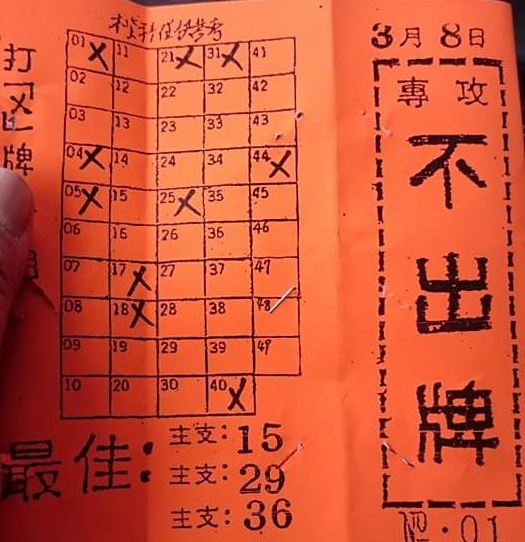 3月8日
專攻
不出牌
№.01
打「X」牌
01 X 11 21 X 31 X 41
02 12 22 32 42
03 13 23 33 43
04 X 14 24 34 44 X
05 X 15 25 X 35 45
06 16 26 36 46
07 17 X 27 37 47
08 18 X 28 38 48
09 19 29 39 49
10 20 30 40 X
最佳:
主支:15
主支:29
主支:36